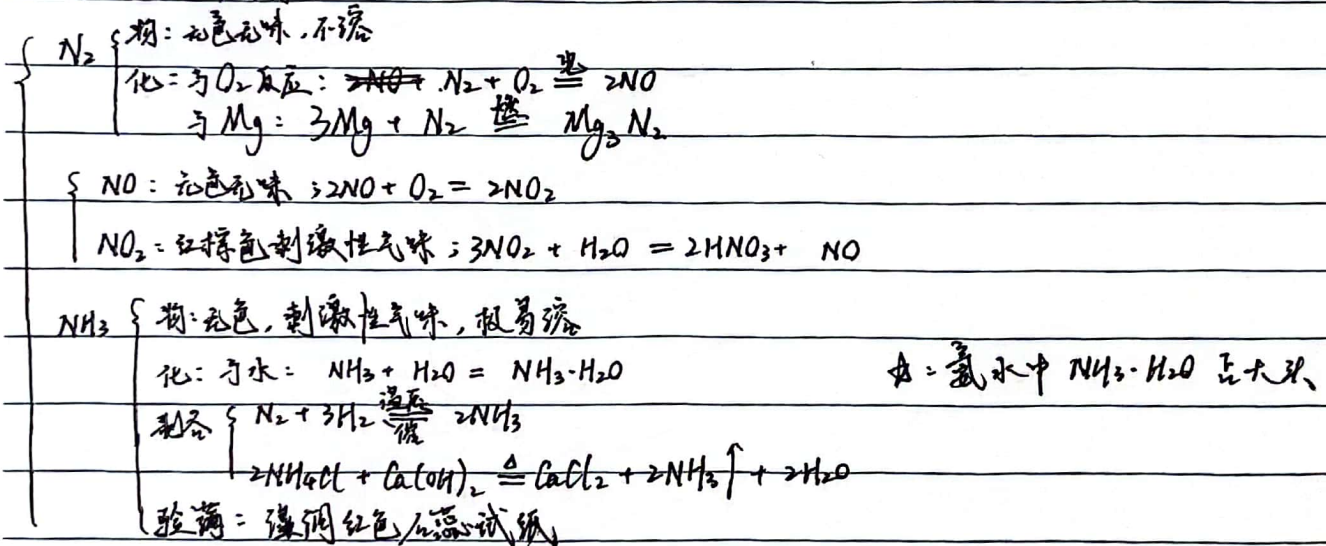 N₂ 物：无色无味，不溶
化：与O₂反应： N₂ + O₂ 光== 2NO
与Mg： 3Mg + N₂ 燃== Mg₃N₂
NO：无色无味；2NO + O₂ = 2NO₂
NO₂：红棕色刺激性气味；3NO₂ + H₂O = 2HNO₃ + NO
NH₃ 物：无色，刺激性气味，极易溶
化：与水： NH₃ + H₂O = NH₃·H₂O 氨水中 NH₃·H₂O 占大头
制备 N₂ + 3H₂ == 2NH₃
2NH₄Cl + Ca(OH)₂ △== CaCl₂ + 2NH₃↑ + 2H₂O
验满：湿润红色石蕊试纸